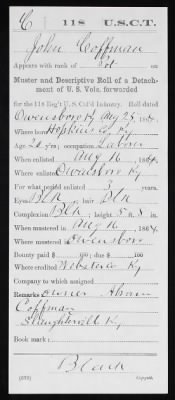 C 118 U.S.C.T.
John Coffman
Appears with rank of Pvt on
Muster and Descriptive Roll of a Detach-
ment of U. S. Vols. forwarded
for the 118 Reg't U. S. Col'd Infantry. Roll dated
Owensboro Ky Aug 25, 1864.
Where born Hopkins Co, Ky
Age 20 y'rs; occupation Laborer
When enlisted Aug 16, 1864.
Where enlisted Owensboro Ky
For what period enlisted 3 years.
Eyes Blk; hair Blk
Complexion Blk; height 5 ft. 8 in.
When mustered in Aug 16, 1864.
Where mustered in Owensboro
Bounty paid $ 100; due $ 100
Where credited Webster Co Ky
Company to which assigned
Remarks: Owner Abram
Coffman
Slaughterville Ky
Book mark:
Black
(639) Copyist.